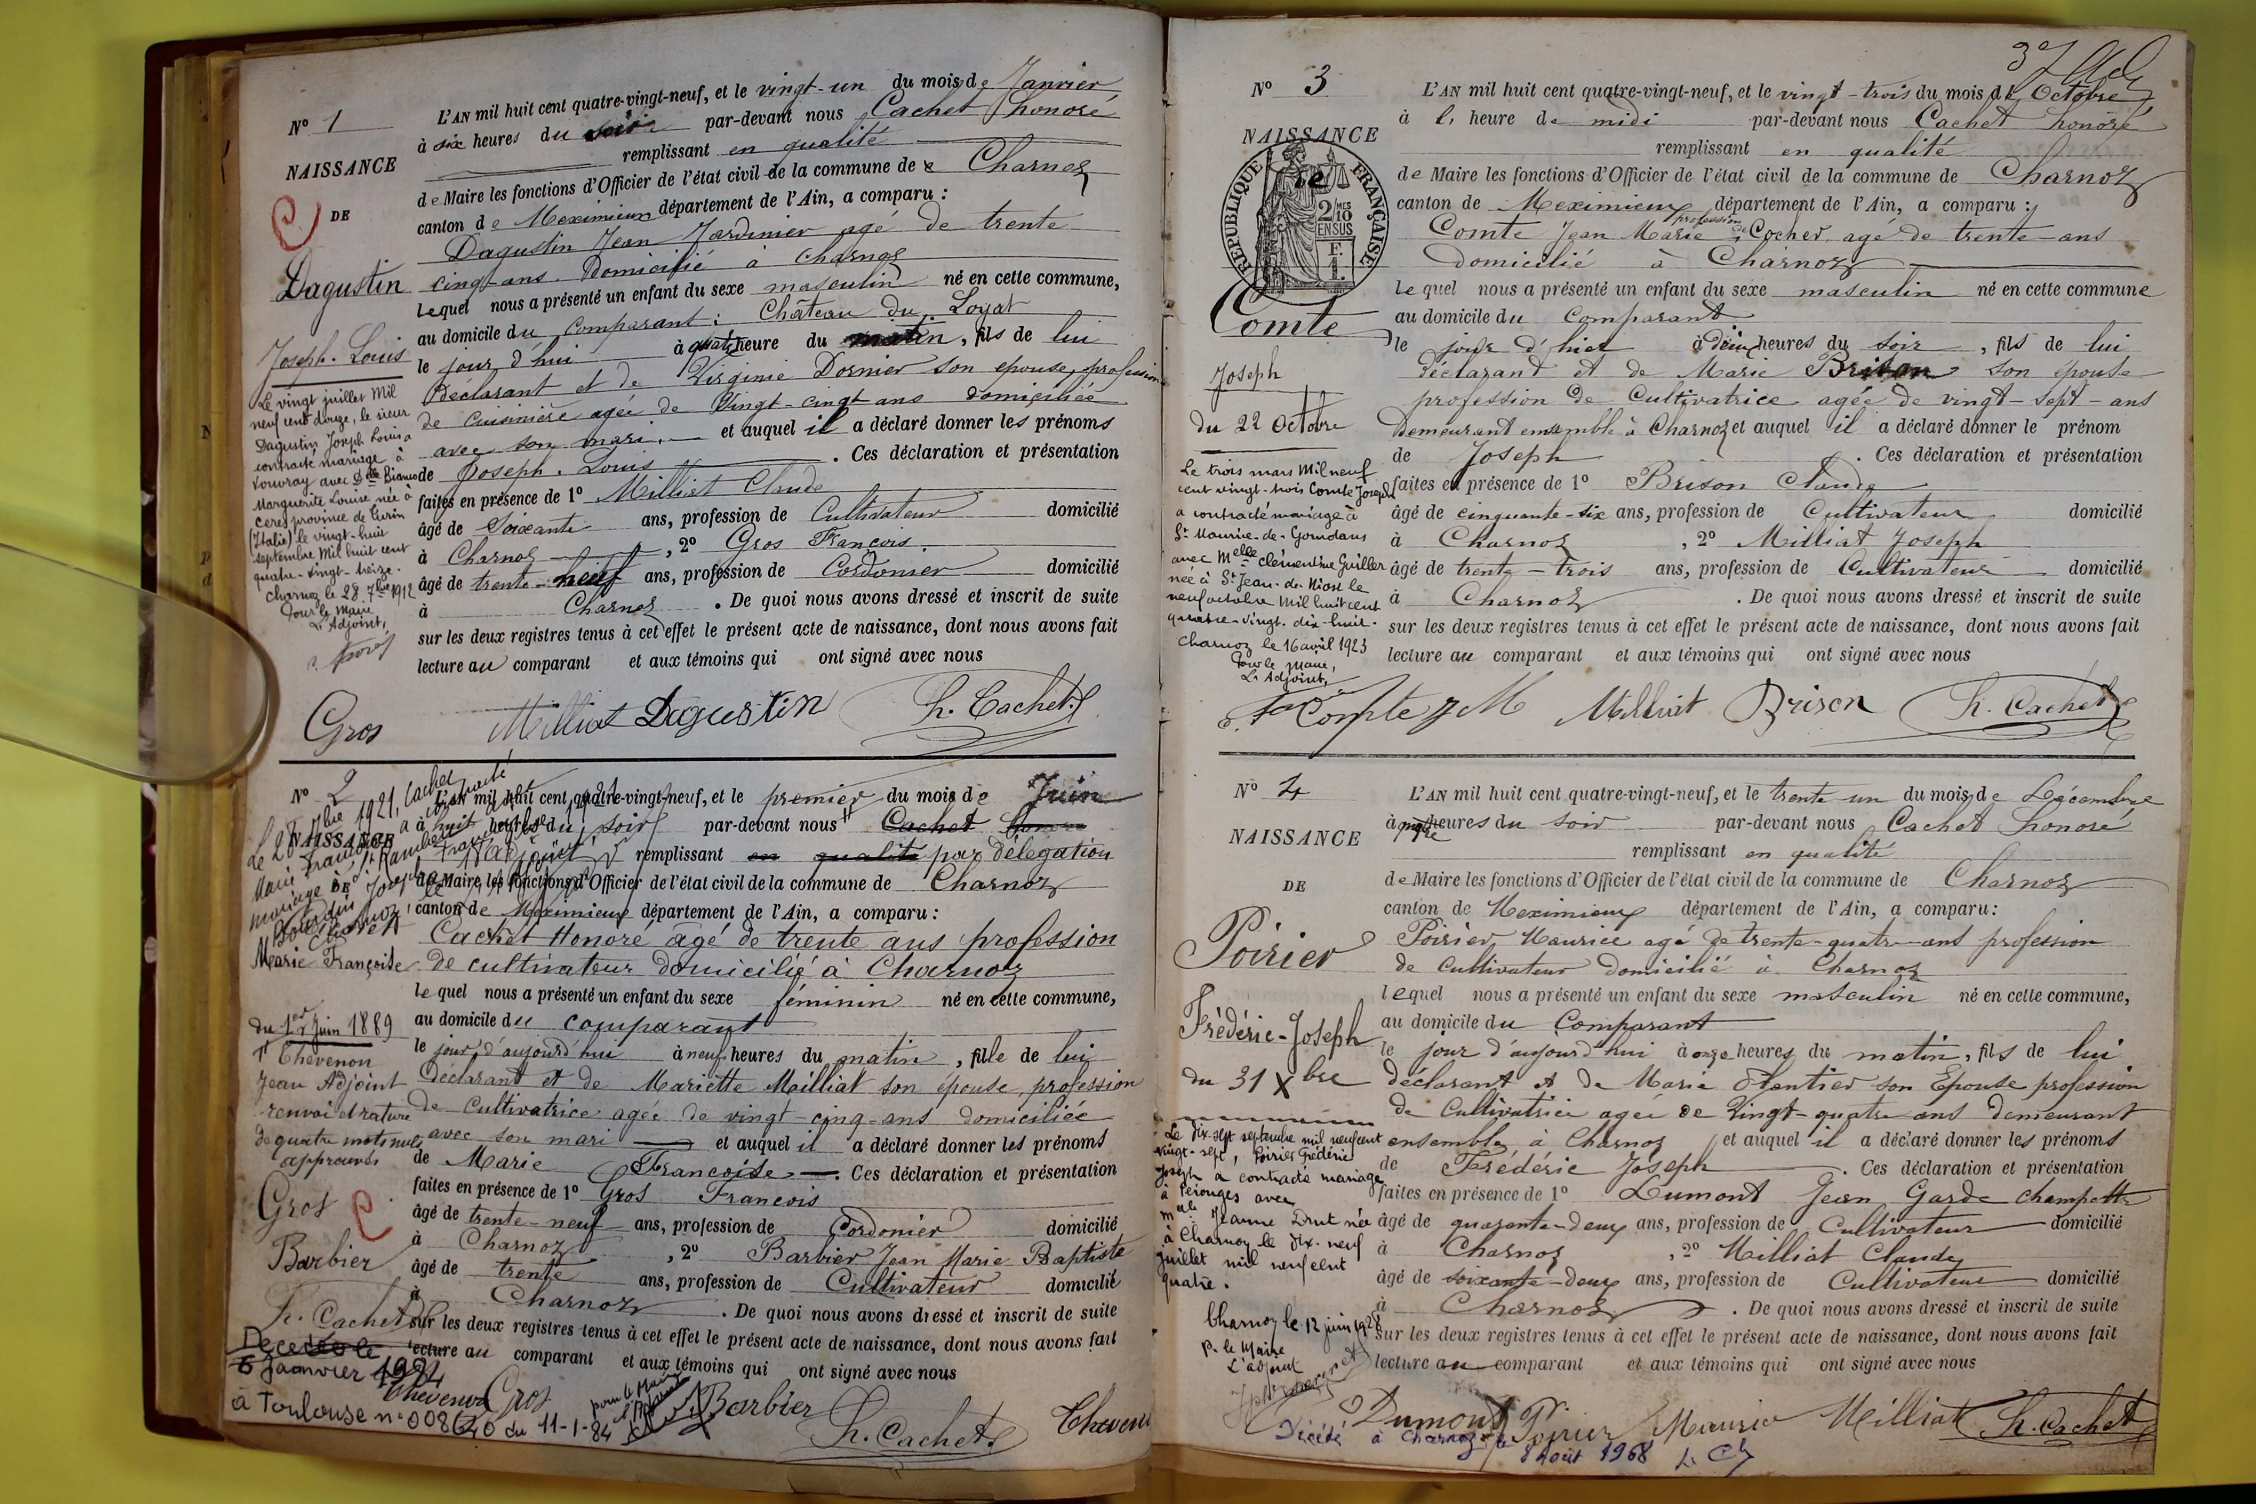 N° 1
NAISSANCE
DE
Dagustin
Joseph. Louis
Le vingt juillet Mil
neuf cent douze, le sieur
Dagustin Joseph Louis a
contracté mariage à
avec Dlle
Marguerite Louise née à
Ceres province de Turin
(Italie) le vingt-huit
septembre Mil huit cent
quatre-vingt-treize.
Charnoz le 28 7bre 1912
Pour le Maire
L'Adjoint,
L'AN mil huit cent quatre-vingt-neuf, et le vingt-un du mois de Janvier
à six heures du soir par-devant nous Cachet honoré
remplissant en qualité
de Maire les fonctions d'Officier de l'état civil de la commune de Charnoz
canton de Meximieux département de l'Ain, a comparu :
Dagustin Jean Jardinier agé de trente
cinq-ans Domicilié à Charnoz
lequel nous a présenté un enfant du sexe masculin né en cette commune,
au domicile du comparant : Château du Loyat
le jour d'hui à quatre heure du matin, fils de lui
Déclarant et de Virginie Dornier son epouse, profession
de cuisinière agée de Vingt-cinq-ans domiciliée
avec son mari. et auquel il a déclaré donner les prénoms
de Joseph. Louis. Ces déclaration et présentation
faites en présence de 1° Milliat Claude
âgé de Soixante ans, profession de Cultivateur domicilié
à Charnoz, 2° Gros François.
âgé de trente-neuf ans, profession de Cordonier domicilié
à Charnoz. De quoi nous avons dressé et inscrit de suite
sur les deux registres tenus à cet effet le présent acte de naissance, dont nous avons fait
lecture au comparant et aux témoins qui ont signé avec nous
Gros Milliat Dagustin h. Cachet
N° 2
NAISSANCE
DE
Cachet
Marie Françoise
du 1er Juin 1889
Chevenon
Jean Adjoint
renvoi et rature
de quatre mots nuls
approuvés
Gros
Barbier
h. Cachet
Decedée le
6 Jaanvier 1984
à Toulouse n° 008640 du 11-1-84
L'AN mil huit cent quatre-vingt-neuf, et le premier du mois de Juin
à huit heures du soir par-devant nous Cachet
remplissant en qualité par délegation
de Maire, les fonctions d'Officier de l'état civil de la commune de Charnoz
canton de Meximieux département de l'Ain, a comparu :
Cachet Honoré agé de trente ans profession
de cultivateur domicilié à Charnoz
lequel nous a présenté un enfant du sexe féminin né en cette commune,
au domicile du comparant
le jour d'aujourd'hui à neuf heures du matin, fille de lui
Déclarant et de Mariette Milliat son épouse, profession
de cultivatrice agée de vingt-cinq-ans domiciliée
avec son mari et auquel il a déclaré donner les prénoms
de Marie Françoise. Ces déclaration et présentation
faites en présence de 1° Gros François
âgé de trente-neuf ans, profession de Cordonier domicilié
à Charnoz, 2° Barbier Jean Marie Baptiste
âgé de trente ans, profession de Cultivateur domicilié
à Charnoz. De quoi nous avons dressé et inscrit de suite
sur les deux registres tenus à cet effet le présent acte de naissance, dont nous avons fait
lecture au comparant et aux témoins qui ont signé avec nous
Chevenon Gros Barbier h. Cachet
N° 3
NAISSANCE
RÉPUBLIQUE FRANÇAISE
2 MES
10
EN SUS
F.
1.
Comte
Joseph
du 22 Octobre
Le trois mars Mil neuf
cent vingt-trois Comte Joseph
a contracté mariage à
St Maurice-de-Gourdans
avec Melle Clémentine Guiller
née à St Jean-de-Niost le
neuf octobre Mil huit cent
quatre-vingt-dix-huit.
Charnoz le 16 avril 1923
Pour le Maire,
L'Adjoint,
L'AN mil huit cent quatre-vingt-neuf, et le vingt-trois du mois de Octobre
à l. heure de midi par-devant nous Cachet honoré
remplissant en qualité
de Maire les fonctions d'Officier de l'état civil de la commune de Charnoz
canton de Meximieux département de l'Ain, a comparu :
Comte Jean Marie profession de Cocher agé de trente-ans
domicilié à Charnoz
lequel nous a présenté un enfant du sexe masculin né en cette commune
au domicile du comparant
le jour d'hier à deux heures du soir, fils de lui
déclarant et de Marie Brison son épouse
profession de Cultivatrice agée de vingt-sept-ans
demeurant ensemble à Charnoz et auquel il a déclaré donner le prénom
de Joseph. Ces déclaration et présentation
faites en présence de 1° Brison Claude
âgé de cinquante-six ans, profession de Cultivateur domicilié
à Charnoz, 2° Milliat Joseph
âgé de trente-trois ans, profession de Cultivateur domicilié
à Charnoz. De quoi nous avons dressé et inscrit de suite
sur les deux registres tenus à cet effet le présent acte de naissance, dont nous avons fait
lecture au comparant et aux témoins qui ont signé avec nous
Comte J M Milliat Brison h. Cachet
N° 4
NAISSANCE
DE
Poirier
Frédéric-Joseph
du 31 Xbre
Le dix-sept septembre mil neuf cent
vingt-sept, Poirier Frédéric
Joseph a contracté mariage
à Pérouges avec
Mlle Jeanne Drut née
à Charnoz le dix-neuf
juillet mil neuf cent
quatre.
Charnoz le 12 juin 1928
P. le Maire
L'adjoint
L'AN mil huit cent quatre-vingt-neuf, et le trente un du mois de Décembre
à quatre heures du soir par-devant nous Cachet honoré
remplissant en qualité
de Maire les fonctions d'Officier de l'état civil de la commune de Charnoz
canton de Meximieux département de l'Ain, a comparu :
Poirier Maurice agé de trente-quatre-ans profession
de Cultivateur domicilié à Charnoz
lequel nous a présenté un enfant du sexe masculin né en cette commune,
au domicile du Comparant
le jour d'aujourd'hui à onze heures du matin, fils de lui
déclarant et de Marie son Epouse profession
de Cultivatrice agée de Vingt-quatre ans demeurant
ensemble à Charnoz et auquel il a déclaré donner les prénoms
de Frédéric Joseph. Ces déclaration et présentation
faites en présence de 1° Dumont Jean Garde champêtre
âgé de quarante-deux ans, profession de Cultivateur domicilié
à Charnoz, 2° Milliat Claude
âgé de soixante-deux ans, profession de Cultivateur domicilié
à Charnoz. De quoi nous avons dressé et inscrit de suite
sur les deux registres tenus à cet effet le présent acte de naissance, dont nous avons fait
lecture au comparant et aux témoins qui ont signé avec nous
Dumont Poirier Maurice Milliat h. Cachet
Décédé à Charnoz le
8 août 1968